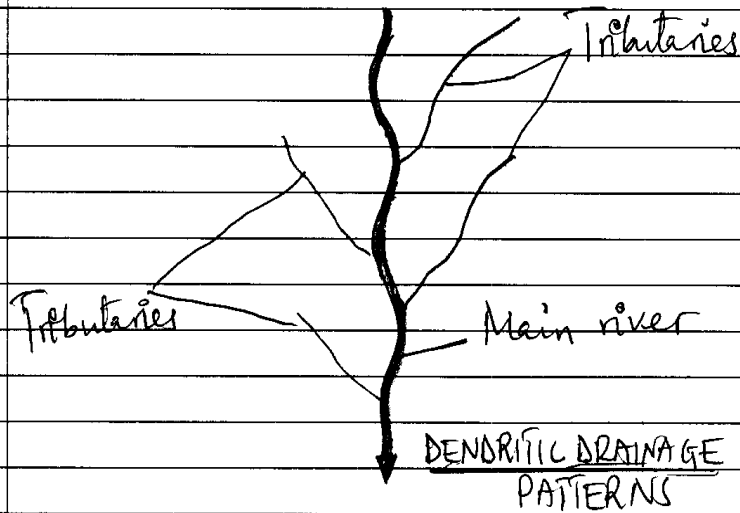 Tributaries
Tributaries
Main river
DENDRITIC DRAINAGE
PATTERNS